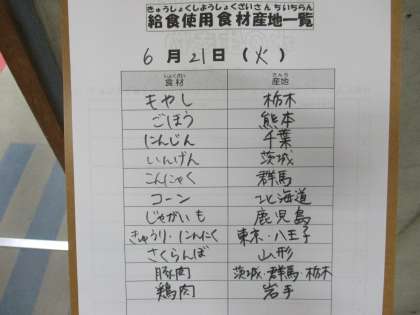 きゅうしょくしようしょくざいさんちいちらん
給食使用食材産地一覧
6月21日(火)
しょくざい さんち
食材 産地
もやし 栃木
ごぼう 熊本
にんじん 千葉
いんげん 茨城
こんにゃく 群馬
コーン 北海道
じゃがいも 鹿児島
きゅうり・にんにく 東京・八王子
さくらんぼ 山形
豚肉 茨城・群馬・栃木
鶏肉 岩手